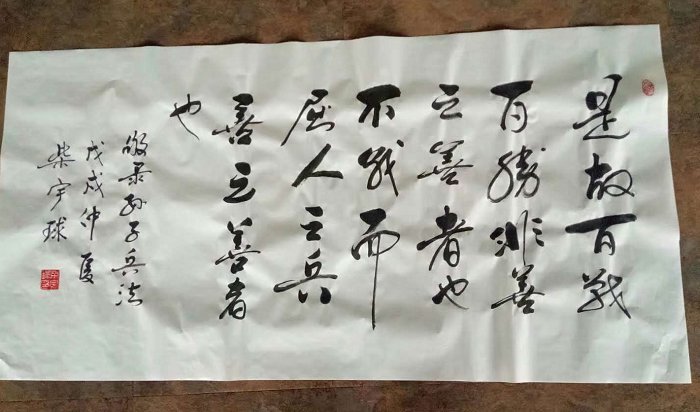 是故百战
百勝非善
之善者也
不战而
屈人之兵
善之善者
也
敬录孙子兵法
戊戌仲夏
柴宇球